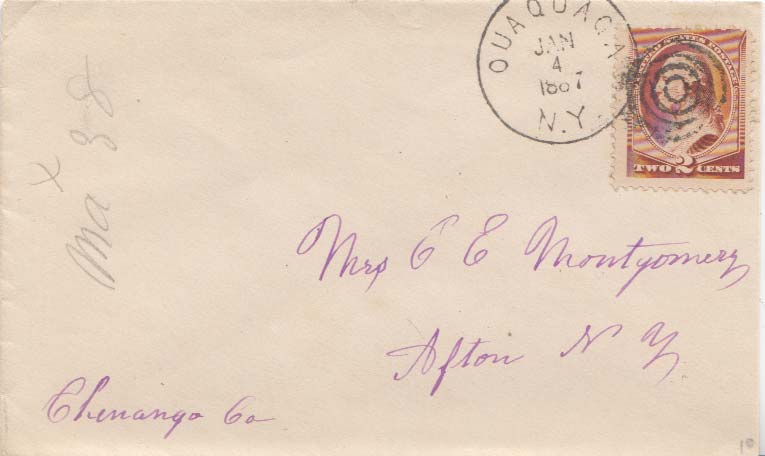 OUAQUAGA
JAN
4
1887
N.Y.
UNITED STATES POSTAGE
TWO 2 CENTS
Mrs C E Montgomery
Afton N Y.
Chenango Co
Max 38
10